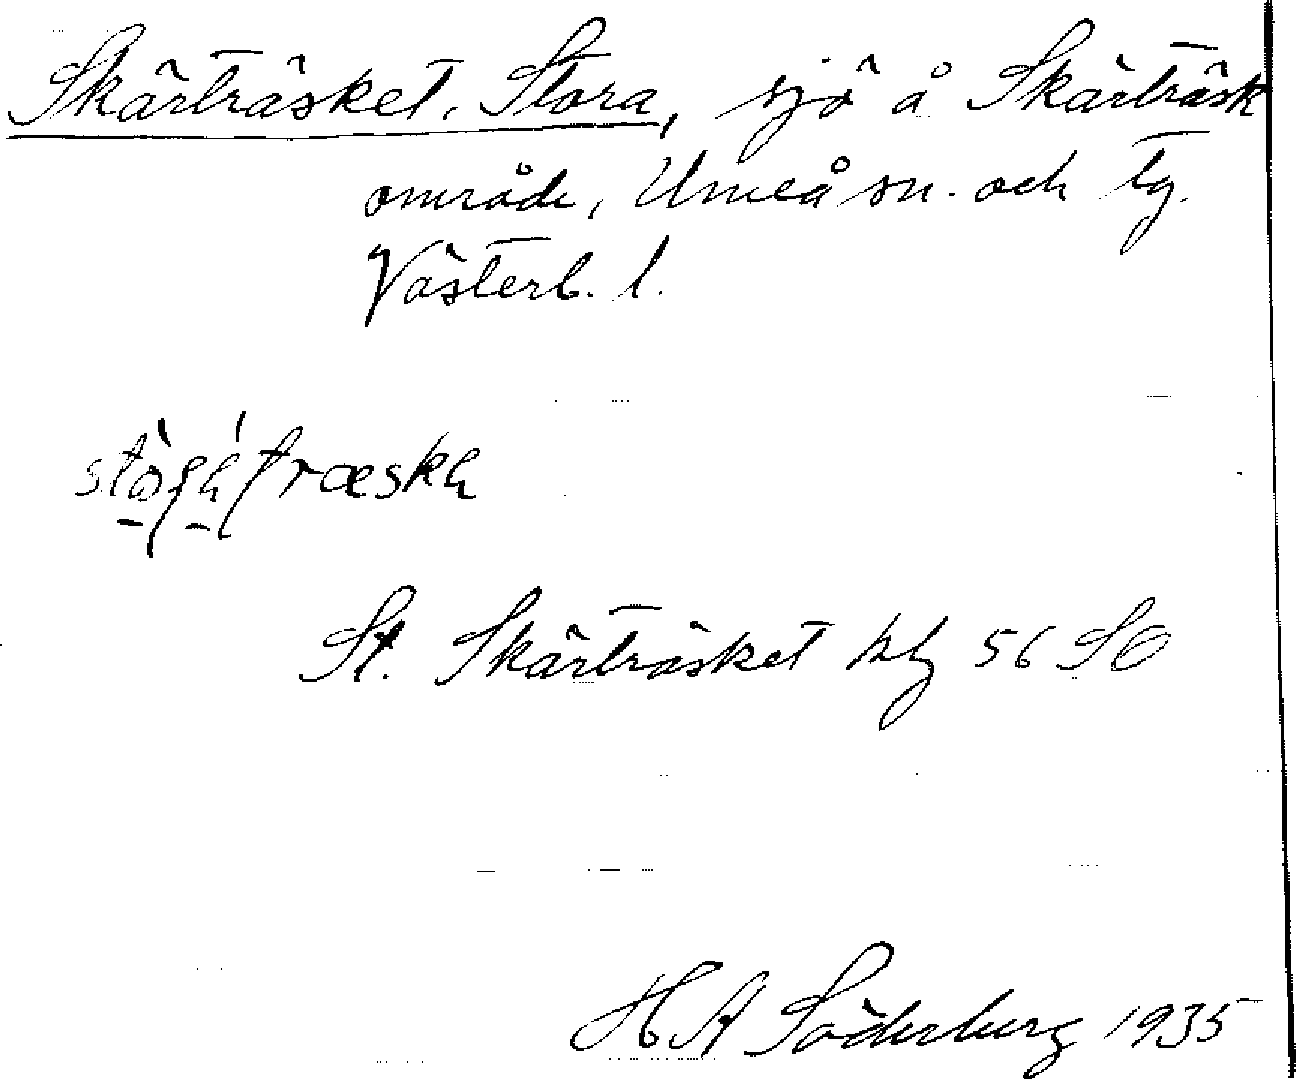 Skärträsket, Stora, sjö å Skärträsk
område, Umeå sn. och tg.
Västerb. l.
St. Skärträsket kbl 56 SO
H A Söderberg 1935